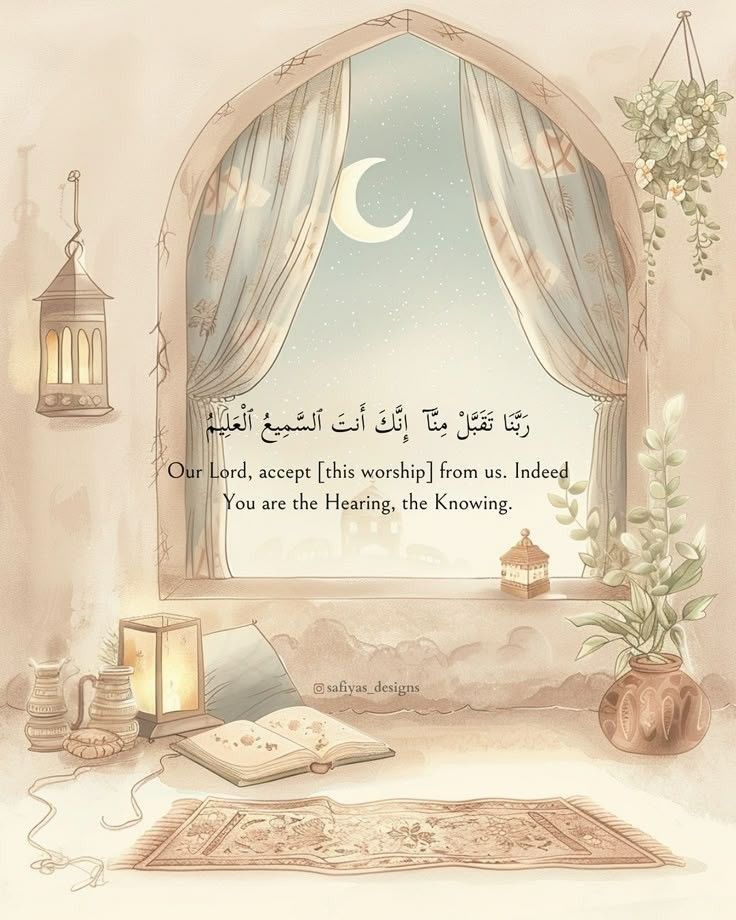 رَبَّنَا تَقَبَّلْ مِنَّآ إِنَّكَ أَنتَ ٱلسَّمِيعُ ٱلْعَلِيمُ
Our Lord, accept [this worship] from us. Indeed
You are the Hearing, the Knowing.
safiyas_designs